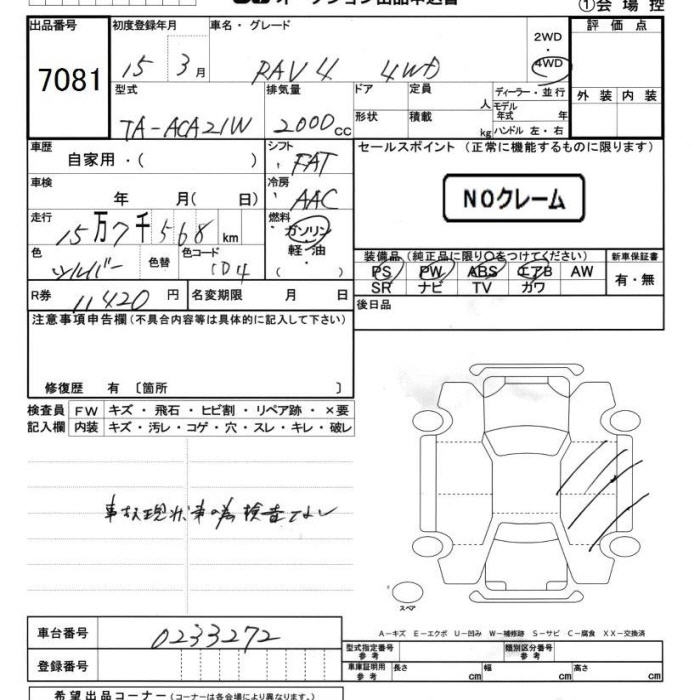 オークション出品申込書
①会場控
出品番号 初度登録年月 車名・グレード 評価点
7081 15 3月 RAV4 4WD 2WD・4WD
外装 内装
型式 排気量 ドア 定員 人 ディーラー・並行
モデル年式 年
TA-ACA21W 2000cc 形状 積載 kg ハンドル 左・右
車歴 シフト セールスポイント(正常に機能するものに限ります)
自家用・( ) FAT
車検 冷房
年 月( 日) AAC NOクレーム
走行 燃料
15万7千568km ガソリン
色 色替 色コード 軽・油 装備品(純正品に限り○をつけてください) 新車保証書
シルバー 1D4 ( ) PS PW ABS エアB AW 有・無
SR ナビ TV カワ
R券 11420円 名変期限 月 日 後日品
注意事項申告欄(不具合内容等は具体的に記入して下さい)
修復歴 有 〔箇所 〕
検査員 FW キズ・飛石・ヒビ割・リペア跡・×要
記入欄 内装 キズ・汚レ・コゲ・穴・スレ・キレ・破レ
事故現状車の為検査なし
スペア
A-キズ E-エクボ U-凹み W-補修跡 S-サビ C-腐食 XX-交換済
車台番号 0233272
型式指定番号 参考 類別区分番号 参考
登録番号 車庫証明用 参考 長さ cm 幅 cm 高さ cm
希望出品コーナー(コーナーは各会場により異なります。)